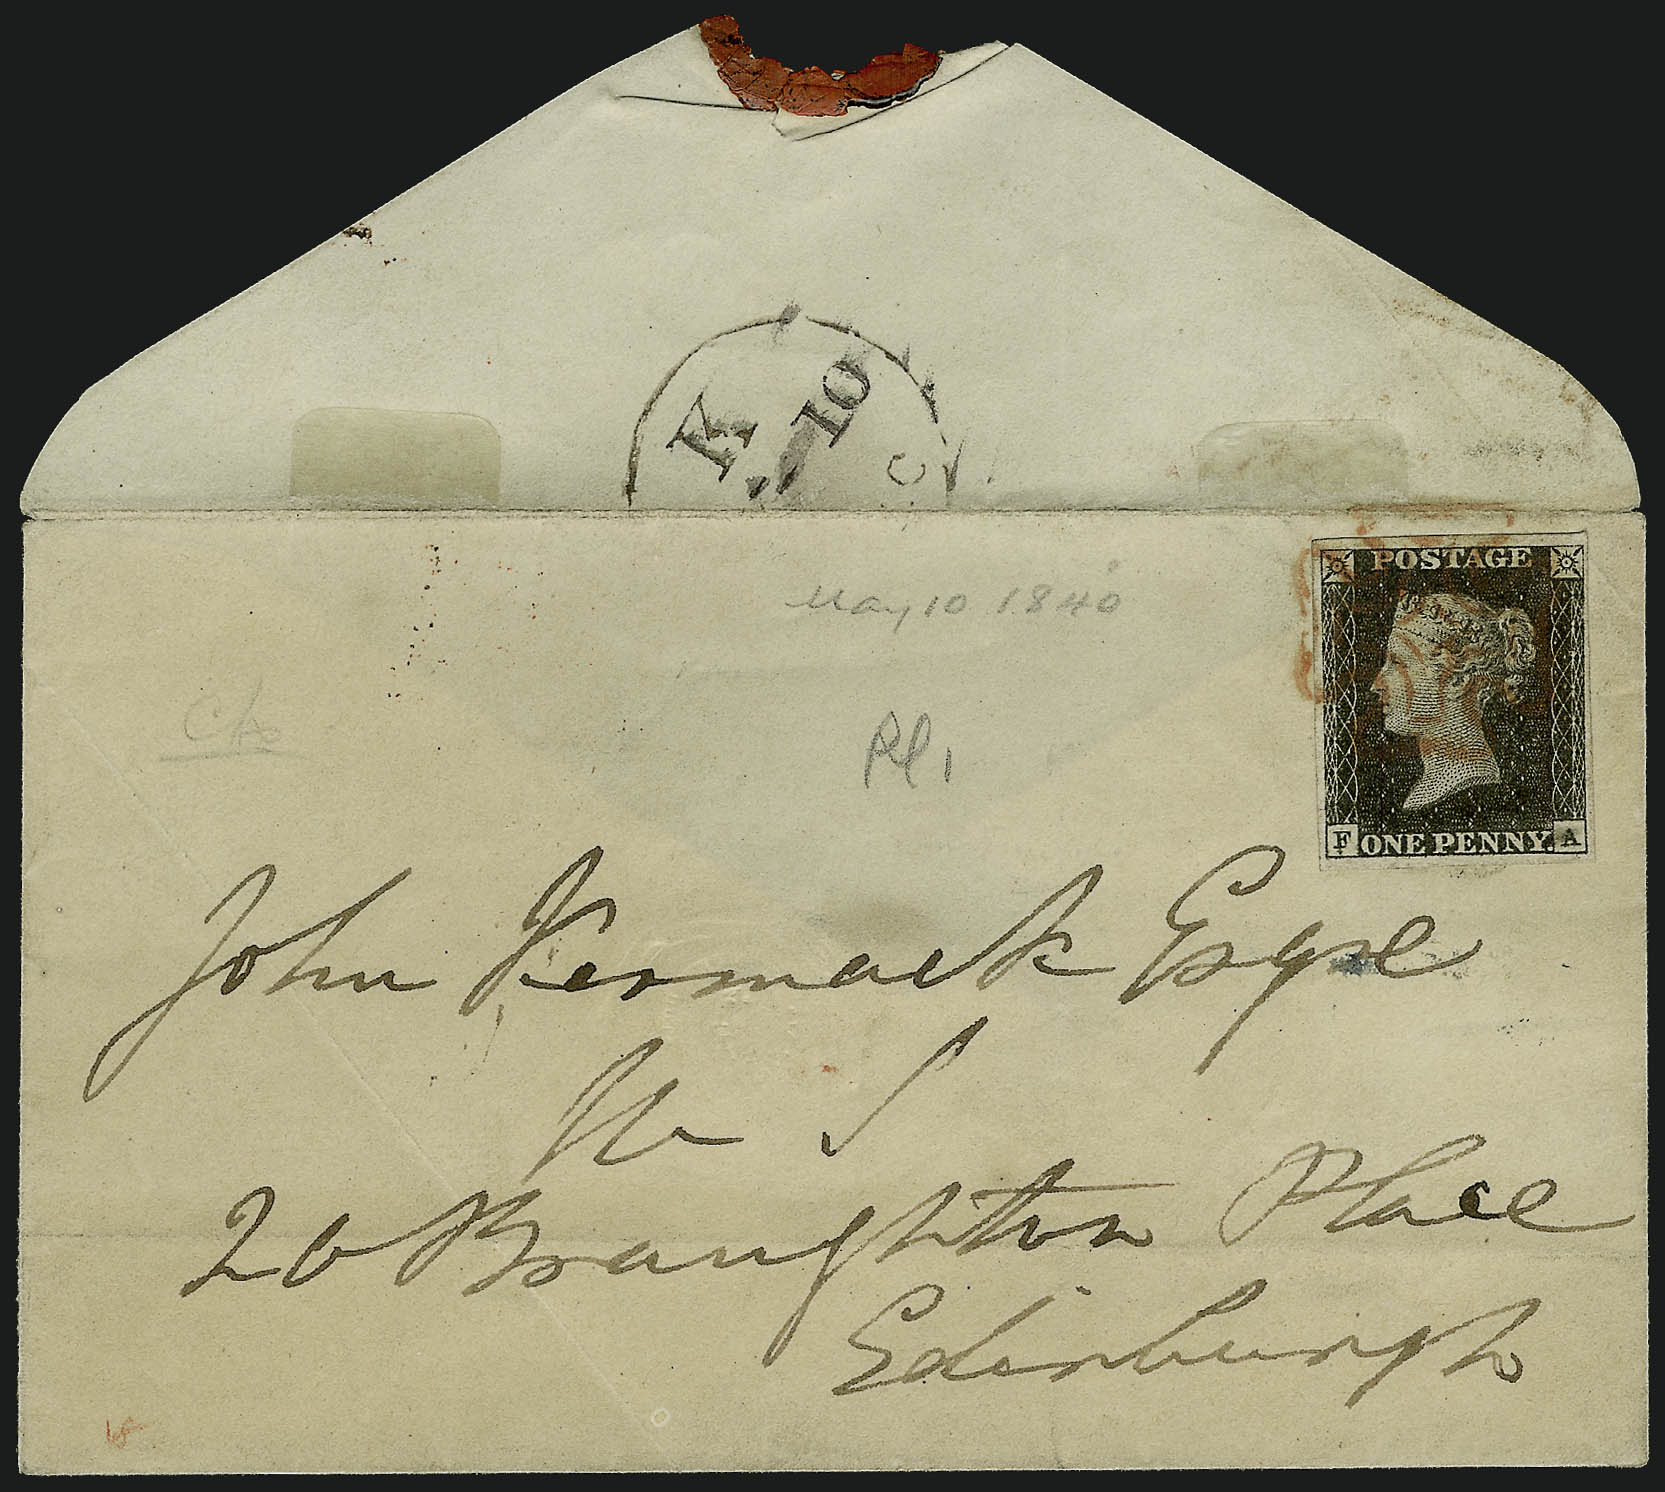 K
10
May 10 1840
Pl 1
POSTAGE
F ONE PENNY. A
John Kermack Esqre
W S
20 Broughton Place
Edinburgh